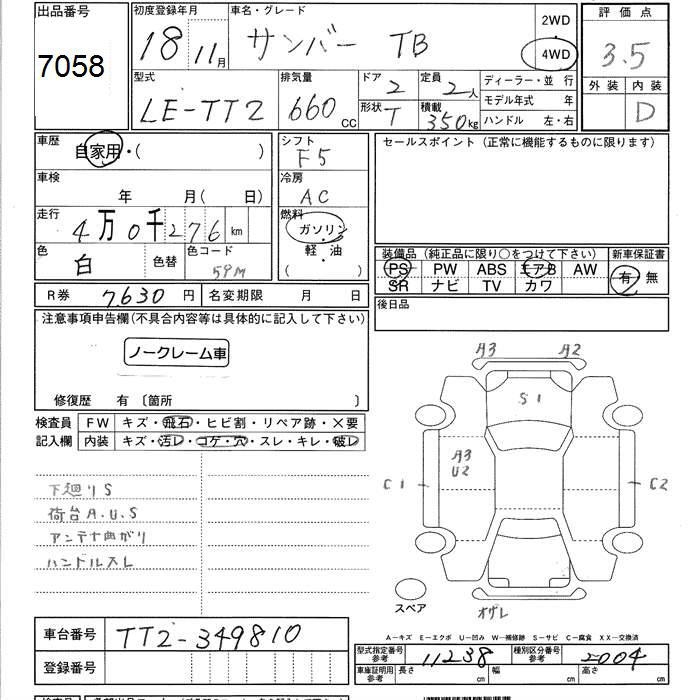 出品番号 7058
初度登録年月 18 11月
車名・グレード サンバー TB
2WD
4WD
評価点 3.5
外装 内装 D
型式 LE-TT2
排気量 660 CC
ドア 2
定員 2人
形状 T
積載 350kg
ディーラー・並 行
モデル年式 年
ハンドル 左・右
車歴 自家用・( )
シフト F5
セールスポイント (正常に機能するものに限ります)
車検 年 月( 日)
冷房 AC
走行 4万0千276 km
燃料 ガソリン
軽・油
( )
色 白 色替
色コード 59M
装備品 (純正品に限り○をつけて下さい)
新車保証書
PS PW ABS エアB AW
SR ナビ TV カワ
有・無
R券 7630 円 名変期限 月 日
後日品
注意事項申告欄(不具合内容等は具体的に記入して下さい)
ノークレーム車
修復歴 有 〔箇所 〕
検査員 FW キズ・飛石・ヒビ割・リペア跡・×要
記入欄 内装 キズ・汚レ・コゲ・穴・スレ・キレ・破レ
A3 A2
S1
A3
U2
C1 C2
下廻りS
荷台A.U.S
アンテナ曲がり
ハンドルスレ
スペア
オザレ
A－キズ E－エクボ U－凹み W－補修跡 S－サビ C－腐食 XX－交換済
車台番号 TT2-349810
型式指定番号 参考 11238
種別区分番号 参考 2004
登録番号
車庫証明用 参考 長さ cm 幅 cm 高さ cm